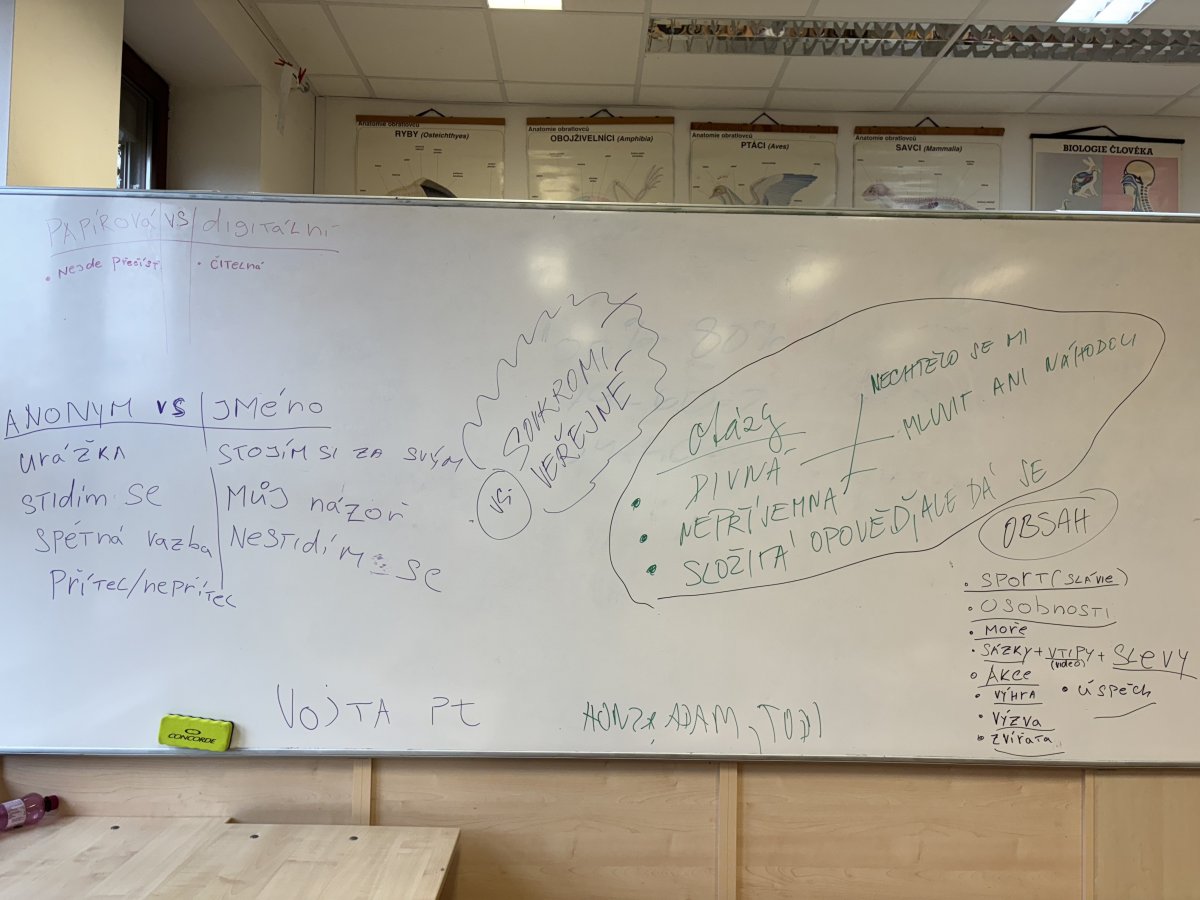 Anatomie obratlovců
RYBY (Osteichthyes)
Anatomie obratlovců
OBOJŽIVELNÍCI (Amphibia)
Anatomie obratlovců
PTÁCI (Aves)
Anatomie obratlovců
SAVCI (Mammalia)
BIOLOGIE ČLOVĚKA
PAPÍROVÁ VS digitální
• Nejde přečíst
• ČITELNÁ
ANONYM VS JMéno
urážka
STOJÍM SI ZA SVÝM
STIDÍM SE
MŮJ názoř
SPĚTNÁ vazba
NeSTIDÍM SE
PŘÍTEC/nePŘÍTEC
SOUKROMI
VEŘEJNÉ
vs.
otázy
• DIVNÁ
• NEPŘÍJEMNA
• SLOŽITÁ OPOVĚĎ, ALE DÁ SE
NECHTĚLO SE MI
MLUVIT ANI NÁHODOU
OBSAH
• SPORT (SLÁVIE)
• OSobNOSTI
• MOŘE
• SÁZKY + VTIPY + SLEVY
(video)
• AKCE
• VÝHRA • úspěch
• VÝZVA
• ZVÍŘATA
VOJTA Pt
HONZA, ADAM, TOBI
CONCORDE